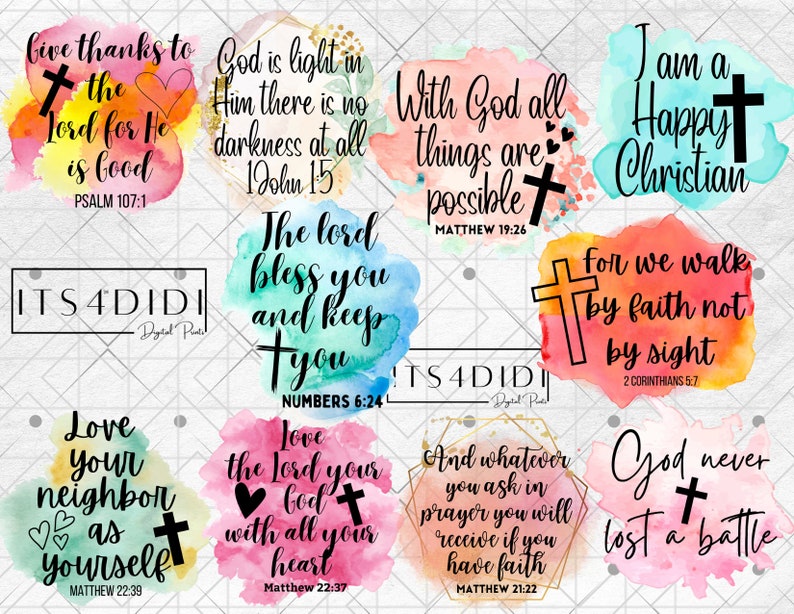 Give thanks to
the
Lord for He
is Good
PSALM 107:1
God is light in
Him there is no
darkness at all
1John 1:5
With God all
things are
possible
MATTHEW 19:26
I am a
Happy
Christian
The lord
bless you
and keep
you
NUMBERS 6:24
ITS4DIDI
Digital Prints
ITS4DIDI
Digital Prints
For we walk
by faith not
by sight
2 CORINTHIANS 5:7
Love
your
neighbor
as
yourself
MATTHEW 22:39
Love
the Lord your
God
with all your
heart
Matthew 22:37
And whatever
you ask in
prayer you will
receive if you
have faith
MATTHEW 21:22
God never
lost a battle